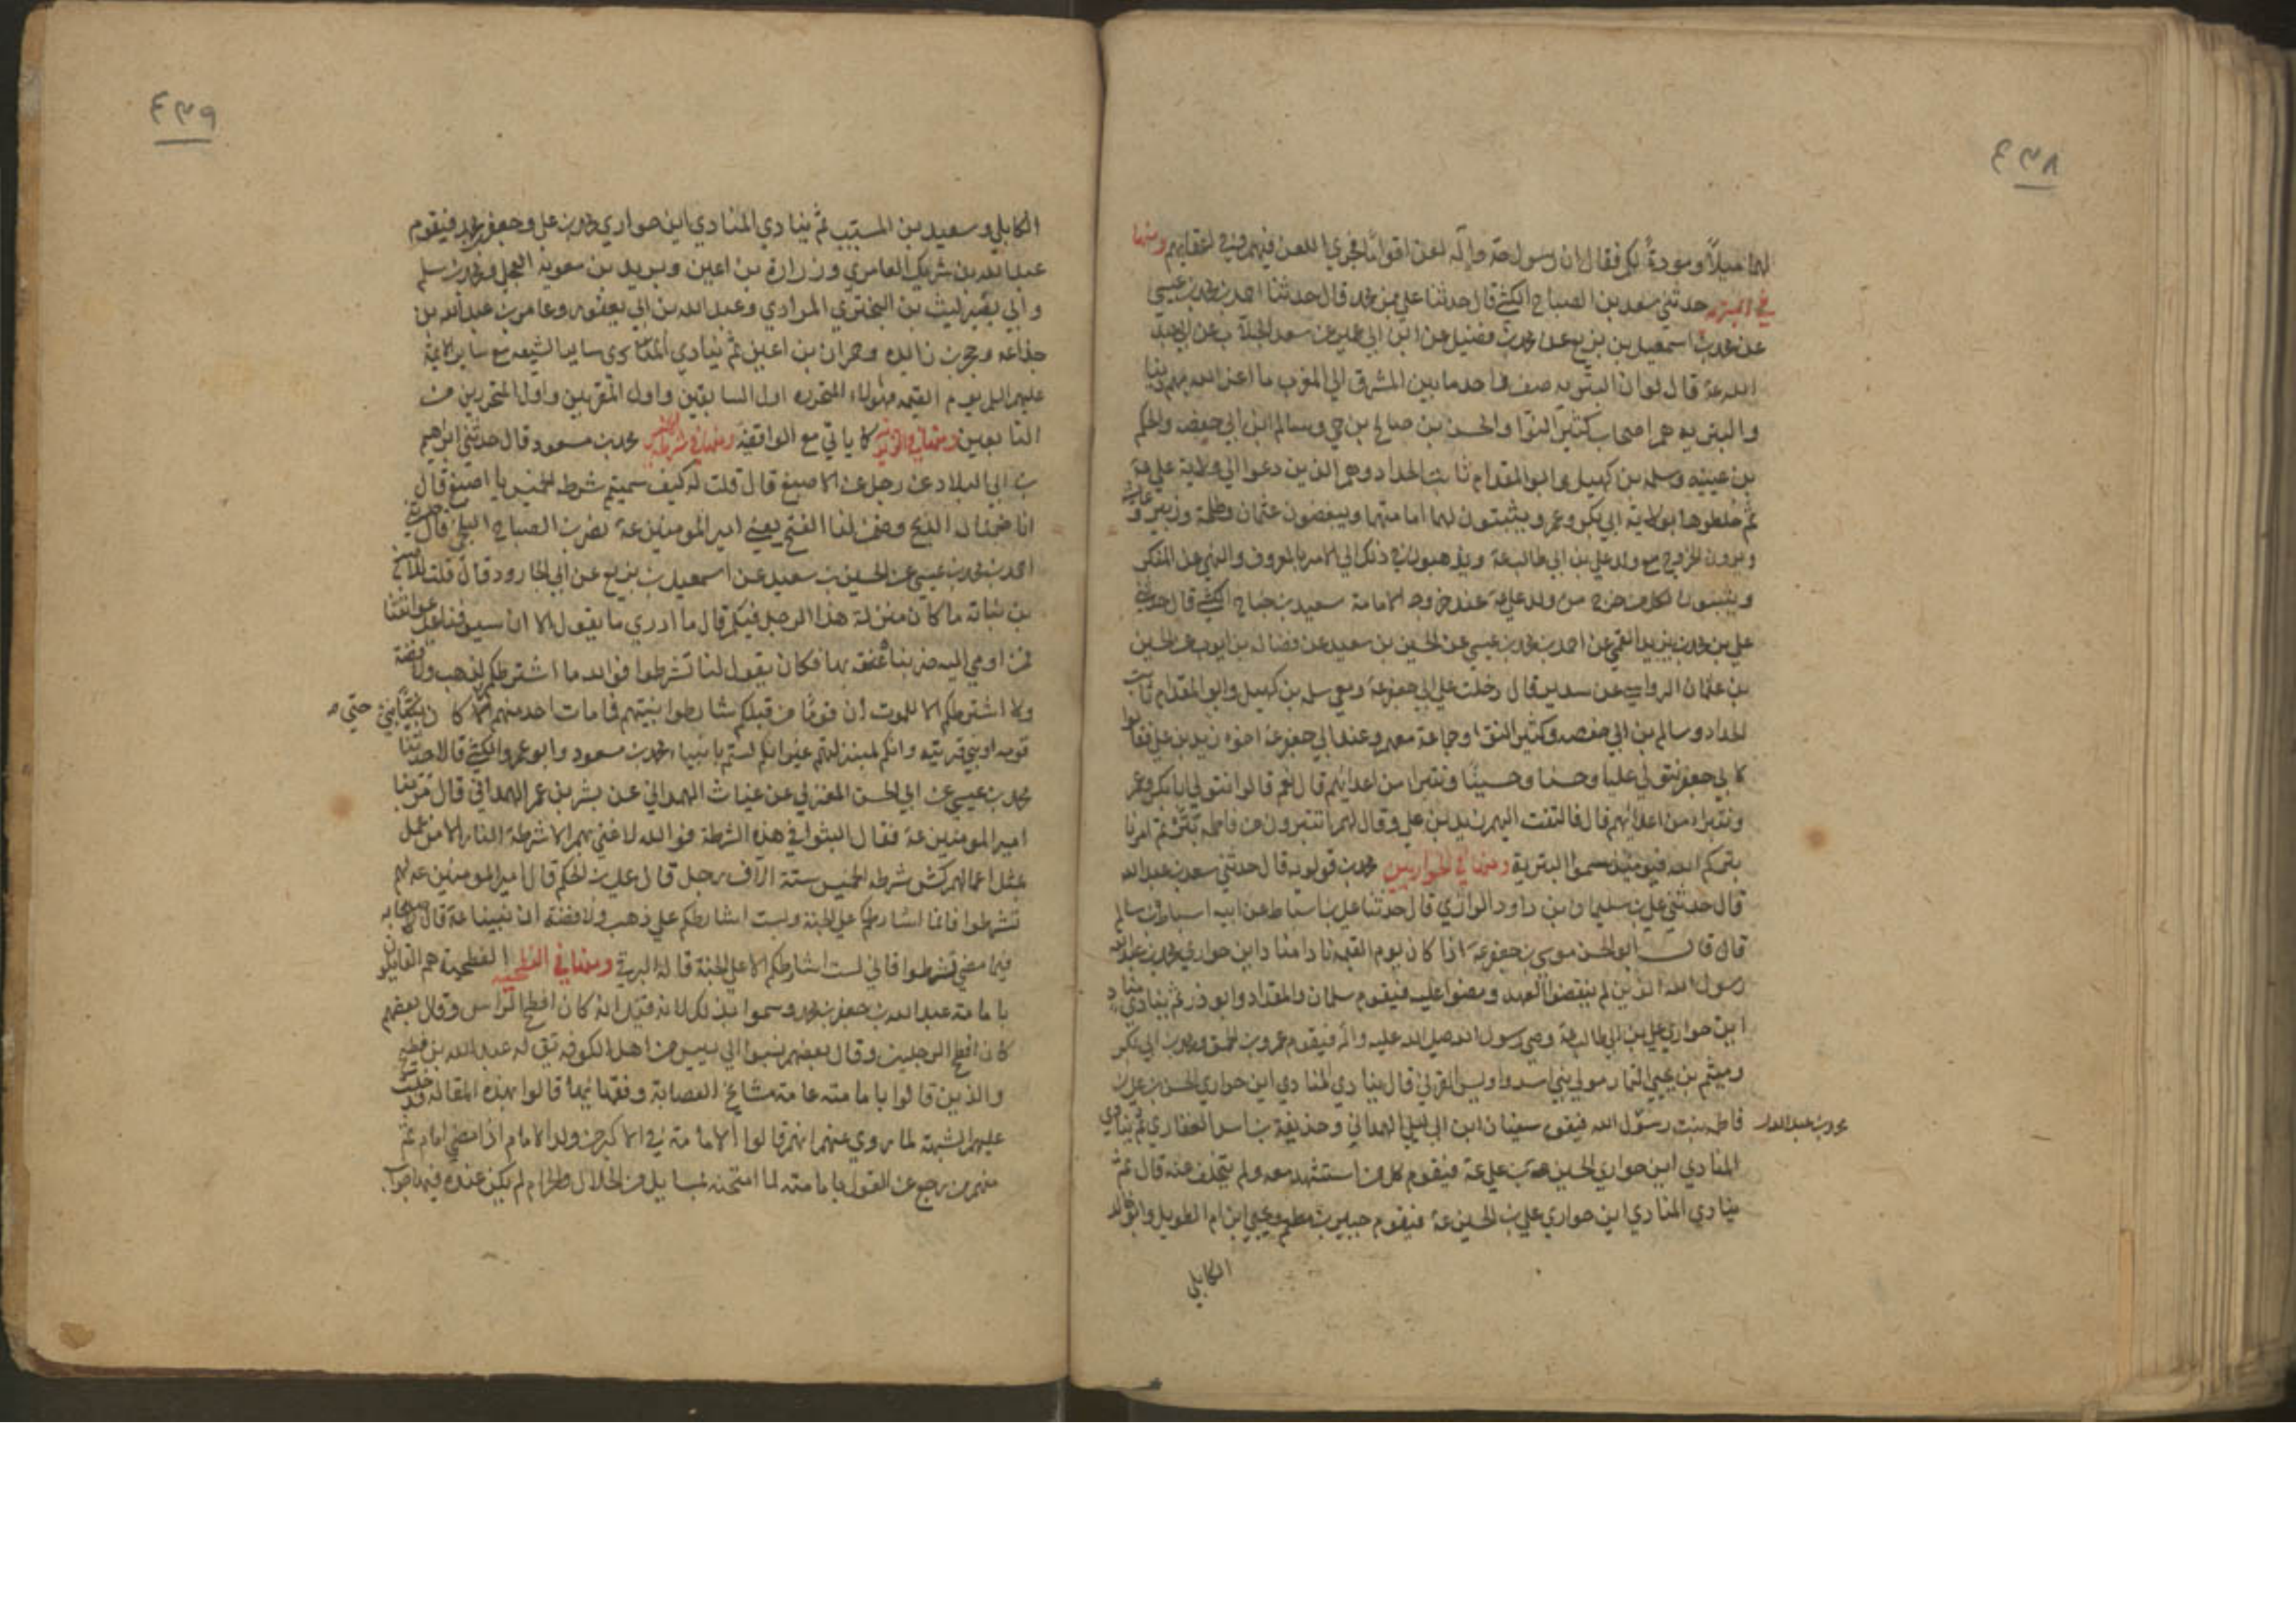 ٤٣٨
لهما ميلاً ومودةً لكم فقال ان رسول الله ص واله لعن اقواماً فجري اللعن فيهم وفي اعقابهم ومنها
في البتريه حدثني سعد بن الصباح الكشي قال حدثنا علي بن محمد قال حدثنا احمد بن محمد بن عيسي
عن محمد بن اسمعيل بن بزيع عن محمد بن فضيل عن ابن ابي عمير عن سعد الجلاب عن ابي عبد
الله عه قال لو ان البتريه صف واحد ما بين المشرق الي المغرب ما اعز الله بهم دينا
والبتريه هم اصحاب كثير النوا والحسن بن صالح بن حي وسالم ابن ابي حفص والحكم
بن عيينه وسلمه بن كهيل وابو المقدام ثابت الحداد وهم الذين دعوا الي ولاية علي عه
ثم خلطوها بولاية ابي بكر وعمر ويثبتون لهما امامتهما ويبغضون عثمان وطلحة وزبير وعايشه
ويرون الخروج مع ولد علي بن ابي طالب عه ويذهبون في ذلك الي الامر بالمعروف والنهي عن المنكر
ويثبتون لكل من خرج من ولد علي عه عند خروجه الامامة سعيد بن جناح الكشي قال حدثني
علي بن محمد بن يزيد القمي عن احمد بن محمد بن عيسي عن الحسين بن سعيد عن فضاله بن ايوب عن الحسين
بن عثمان الرواسي عن سدير قال دخلت علي ابي جعفر عه ومعي سلمه بن كهيل وابو المقدام ثابت
الحداد وسالم بن ابي حفص وكثير النوا وجماعة معهم وعند ابي جعفر عه اخوه زيد بن علي فقالوا
لابي جعفر نتولي عليا وحسنا وحسينا ونتبراء من اعدائهم قال نعم قالوا نتولي ابا بكر وعمر
ونتبراء من اعدائهم قال فالتفت اليهم زيد بن علي وقال لهم اتتبرون من فاطمه بترتم امرنا
بتركم الله فيومئذ سموا البترية ومنها في الحواريين محمد بن قولويه قال حدثني سعد بن عبد الله
قال حدثني علي بن سليمان بن داود الرازي قال حدثنا علي بن اسباط عن ابيه اسباط بن سالم
قال قال ابو الحسن موسي بن جعفر عه اذا كان يوم القيمه نادا مناد اين حواري محمد بن عبد الله
رسول الله الذين لم ينقضوا العهد ومضوا عليه فيقوم سلمان والمقداد وابو ذر ثم ينادي مناد
اين حواري علي بن ابي طالب عه وصي رسول الله صلي الله عليه واله فيقوم عمرو بن الحمق ومحمد بن ابي بكر
وميثم بن يحيي التمار مولي بني اسد واويس القرني قال ينادي المنادي اين حواري الحسن بن علي بن
فاطمه بنت رسول الله فيقوم سفيان ابن ابي ليلي الهمداني وحذيفة بن اسد الغفاري ثم ينادي
المنادي اين حواري الحسين بن علي عه فيقوم كل من استشهد معه ولم يتخلف عنه قال ثم
ينادي المنادي اين حواري علي بن الحسين عه فيقوم جبير بن مطعم ويحيي ابن ام الطويل وابو خالد
الكابلي
٤٣٩
الكابلي وسعيد بن المسيب ثم ينادي المنادي اين حواري محمد بن علي وجعفر بن محمد فيقوم
عبد الله بن شريك العامري وزرارة بن اعين وبريد بن معويه العجلي ومحمد بن مسلم
وابي بصير ليث بن البختري المرادي وعبد الله بن ابي يعفور وعامر بن عبد الله بن
جذاعه وحجر بن زايده وحمران بن اعين ثم ينادي المنادي ساير الشيعه مع ساير الائمة
عليهم السلم يوم القيمه فهولاء المتحوره اول السابقين واول المقربين واول المتحورين من
التابعين كما ياتي مع الواقفيه ومنها في شرطه الخميس محمد بن مسعود قال حدثني ابراهيم
بن ابي البلاد عن رجل عن الاصبغ قال قلت له كيف سميتم شرطه الخميس يا اصبغ قال
انا ضمنا له الذبح وضمن لنا الفتح يعني امير المومنين عه نصر بن الصباح البلخي قال حدثني
احمد بن محمد بن عيسي عن الحسين بن سعيد عن اسمعيل بن بزيع عن ابي الجارود قال قلت للاصبغ
بن نباته ما كان منزلة هذا الرجل فيكم قال ما ادري ما يقول الا ان سيوفنا علي عواتقنا
فمن اومي اليه ضربناه بها فكان يقول لنا تشرطوا فوالله ما اشتراطكم لذهب ولا فضة
ولا اشتراطكم الا للموت ان قوما من قبلكم تشارطوا بينهم فما مات احد منهم الا كان نبي حتي
قومه او نبي قريته وانكم لبمنزلتهم غير انكم لستم بانبياء محمد بن مسعود وابو عمرو الكشي قالا حدثنا
محمد بن عيسي عن ابي الحسن العزلي عن غياث الهمداني عن بشر بن عمر الهمداني قال مر بنا
امير المومنين عه فقال البثوا في هذه الشرطة فوالله لا غني بهم الا شرطة النار الا من عمل
بمثل اعمالهم كش شرطه الخميس ستة الاف رجل قال علي بن الحكم قال امير المومنين عه لهم
تشرطوا فانما اشارطكم علي الجنة ولست اشارطكم علي ذهب ولا فضة ان نبينا عه قال لاصحابه
فيما مضي تشرطوا فاني لست اشارطكم الا علي الجنة قاله البرقي ومنها في الفطحيه الفطحية هم القايلون
بامامته عبد الله بن جعفر بن محمد وسموا بذلك لانه قيل انه كان افطح الراس وقال بعضهم
كان افطح الرجلين وقال بعضهم نسبوا الي رييس من اهل الكوفه يق له عبد الله بن فطيح
والذين قالوا بامامته عامة مشايخ العصابة وفقهائها قالوا بهذه المقالة فدخلت
عليهم الشبهة لما روي عنهم انهم قالوا الامامة في الاكبر من ولد الامام اذا مضي امام ثم
منهم من رجع عن القول بامامته لما امتحنه بمسايل من الحلال والحرام لم يكن عنده فيها جواب